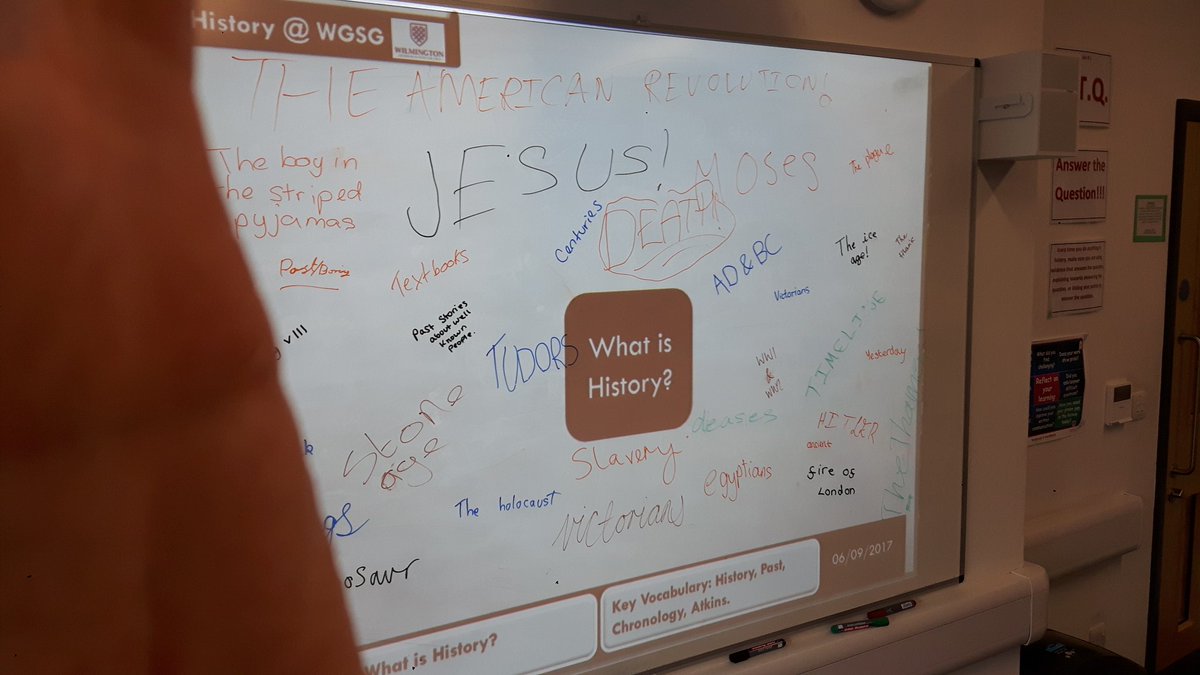 History @ WGSG
WILMINGTON
THE AMERICAN REVOLUTION!
The boy in
the striped
pyjamas
JESUS!
MOSES
The plague
Centuries
DEATH!
AD & BC
The ice
age!
Textbooks
Victorians
Past stories
about well
known
people.
VIII
TUDORS
What is
History?
WW1
&
WW2
TIMELINE
Yesterday
Stone
age
deases
HITLER
ancient
Slavery
egyptians
fire of
London
The holocaust
victorians
osaur
06/09/2017
Key Vocabulary: History, Past,
Chronology, Atkins.
What is History?
T.Q.
Answer the
Question!!!
Reflect on
your
learning